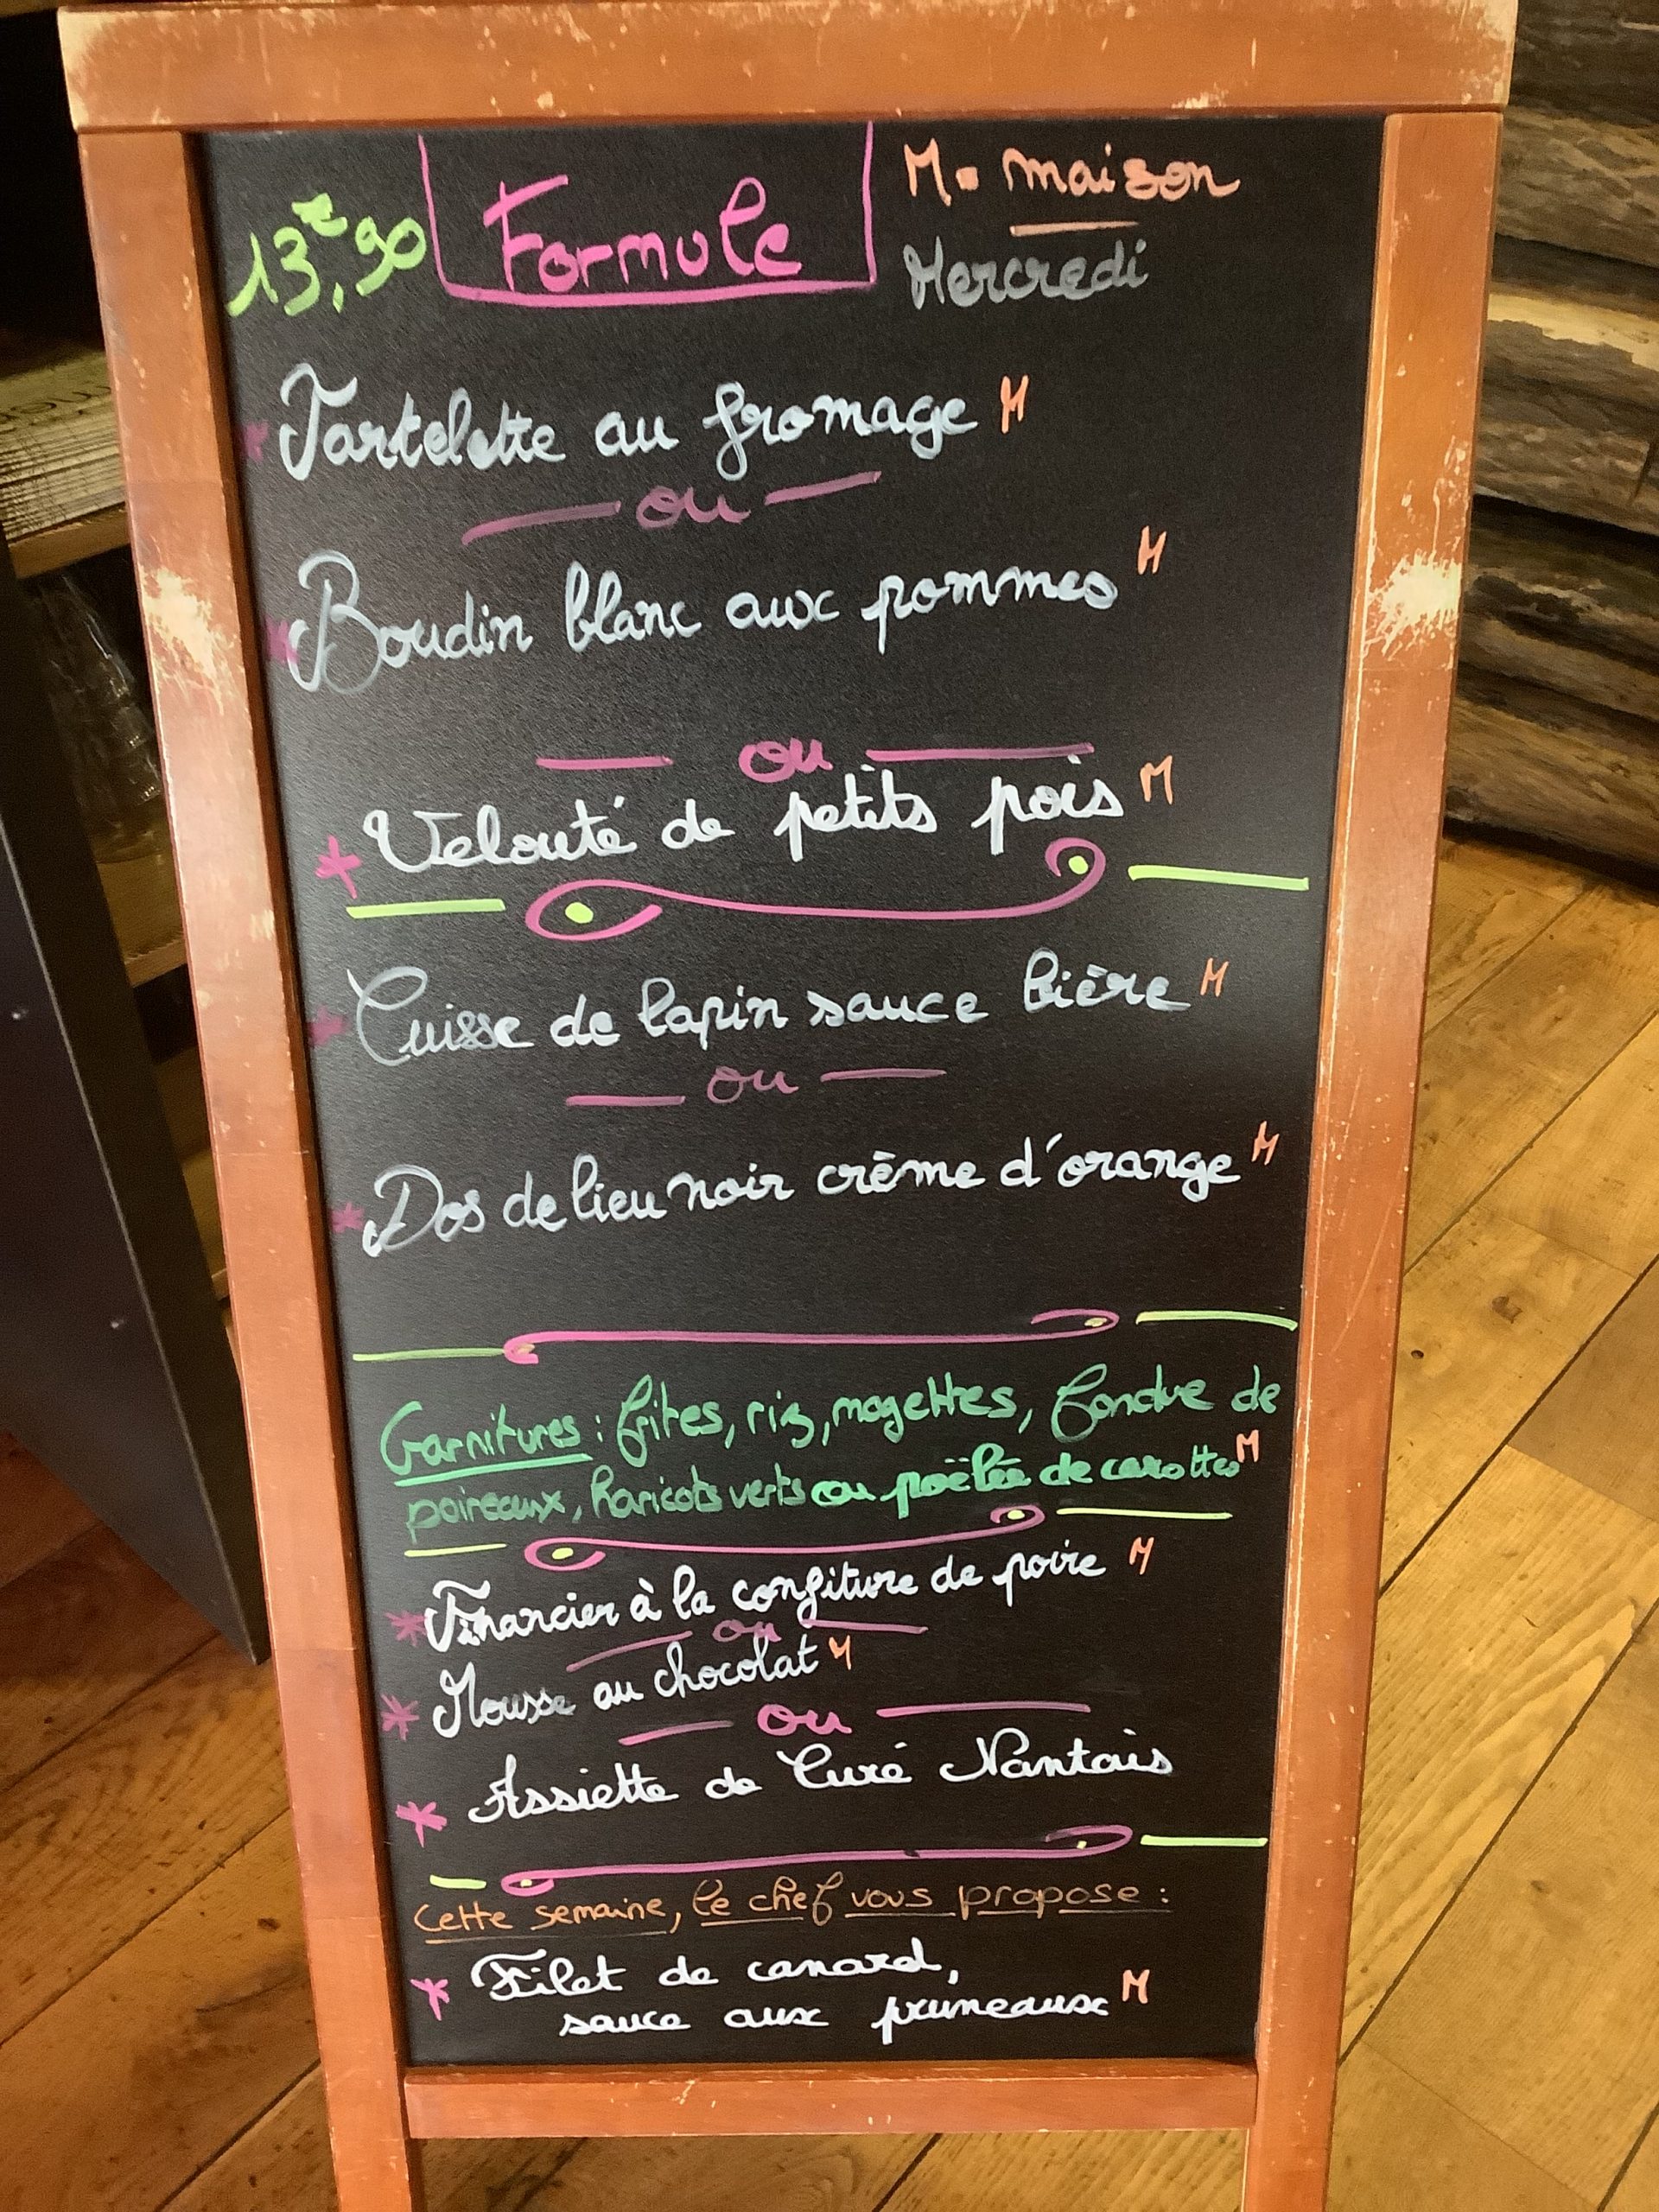 13€,90 Formule M = maison
Mercredi
* Tartelette au fromage M
— ou —
* Boudin blanc aux pommes M
— ou —
* Velouté de petits pois M
* Cuisse de lapin sauce bière M
— ou —
* Dos de lieu noir crème d'orange M
Garnitures : frites, riz, mogettes, fondue de
poireaux, haricots verts ou poëlée de carottes M
* Financier à la confiture de poire M
— ou —
* Mousse au chocolat M
— ou —
* Assiette de Curé Nantais
Cette semaine, le chef vous propose :
* Filet de canard,
sauce aux pruneaux M